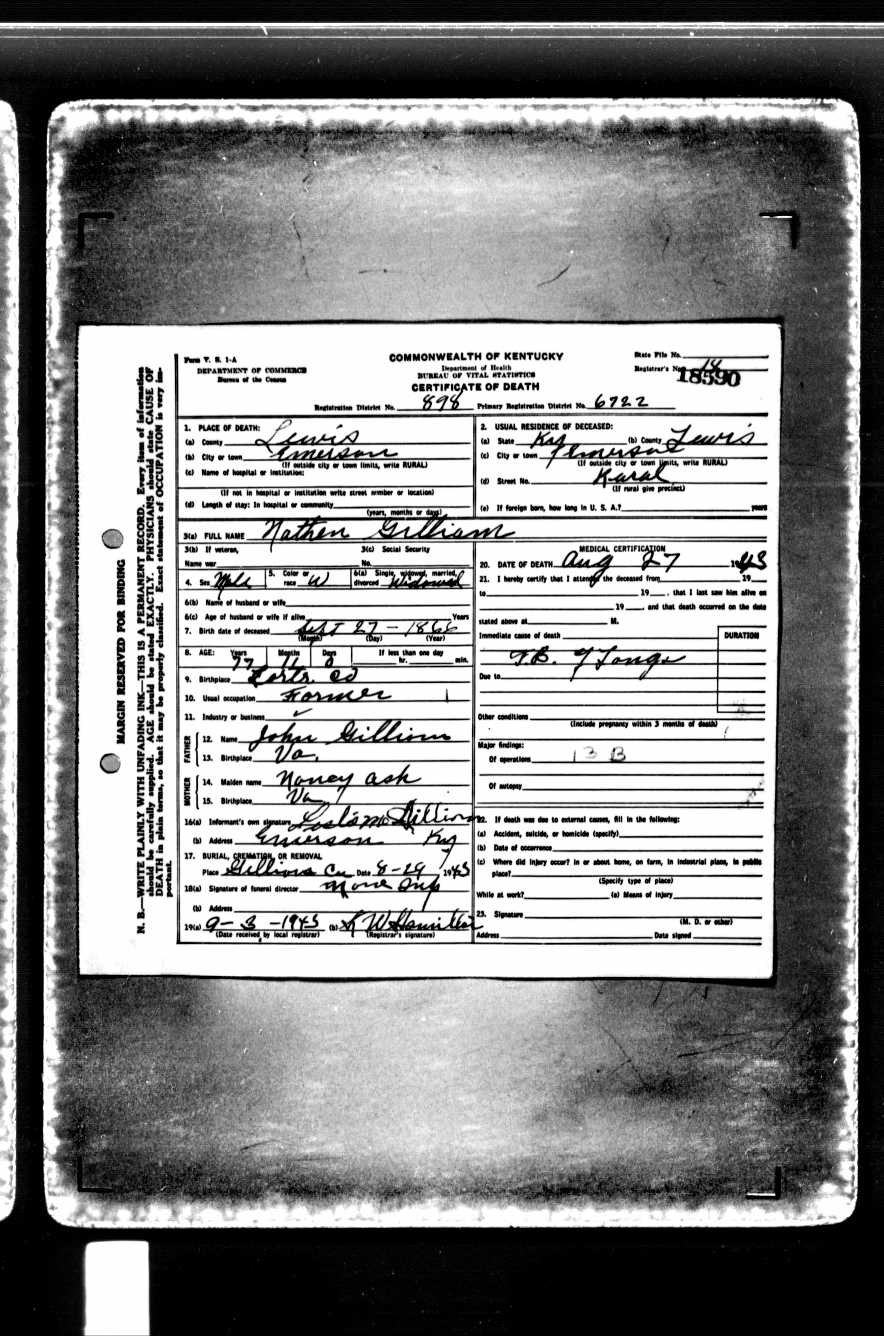 MARGIN RESERVED FOR BINDING
N. B.—WRITE PLAINLY WITH UNFADING INK—THIS IS A PERMANENT RECORD. Every item of information
should be carefully supplied. AGE should be stated EXACTLY. PHYSICIANS should state CAUSE OF
DEATH in plain terms, so that it may be properly classified. Exact statement of OCCUPATION is very im-
portant.
Form V. S. 1-A
DEPARTMENT OF COMMERCE
Bureau of the Census
COMMONWEALTH OF KENTUCKY
Department of Health
BUREAU OF VITAL STATISTICS
CERTIFICATE OF DEATH
State File No.
Registrar's No. 18
18590
Registration District No. 898 Primary Registration District No. 6722
1. PLACE OF DEATH:
(a) County Lewis
(b) City or town Emerson
(If outside city or town limits, write RURAL)
(c) Name of hospital or institution:
(If not in hospital or institution write street number or location)
(d) Length of stay: In hospital or community
(years, months or days)
2. USUAL RESIDENCE OF DECEASED:
(a) State Ky (b) County Lewis
(c) City or town Emerson
(If outside city or town limits, write RURAL)
(d) Street No. Rural
(If rural give precinct)
(e) If foreign born, how long in U. S. A.? years
3(a) FULL NAME Nathen Gilliam
3(b) If veteran,
Name war
3(c) Social Security
No.
4. Sex Male
5. Color or race W
6(a) Single, widowed, married, divorced Widowed
6(b) Name of husband or wife
6(c) Age of husband or wife if alive Years
7. Birth date of deceased Sept 27 - 1866
(Month) (Day) (Year)
8. AGE: Years Months Days If less than one day
77 11 0 hr. min.
9. Birthplace Co
10. Usual occupation Farmer
11. Industry or business
FATHER
12. Name John Gilliam
13. Birthplace Va.
MOTHER
14. Maiden name Nancy Ash
15. Birthplace Va
16(a) Informant's own signature Gilliam
(b) Address Emerson Ky
17. BURIAL, CREMATION, OR REMOVAL
Place Gilliam Date 8-29 1943
18(a) Signature of funeral director
(b) Address
19(a) 9-3-1943 (b)
(Date received by local registrar) (Registrar's signature)
MEDICAL CERTIFICATION
20. DATE OF DEATH Aug 27 1943
21. I hereby certify that I attended the deceased from 19
to 19 , that I last saw him alive on
19 , and that death occurred on the date
stated above at M.
Immediate cause of death
DURATION
T.B. of Longs
Due to
Other conditions
(Include pregnancy within 3 months of death)
Major findings:
Of operations 13 B
Of autopsy
22. If death was due to external causes, fill in the following:
(a) Accident, suicide, or homicide (specify)
(b) Date of occurrence
(c) Where did injury occur? In or about home, on farm, in industrial place, in public
place?
(Specify type of place)
While at work? (e) Means of injury
23. Signature
(M. D. or other)
Address Date signed